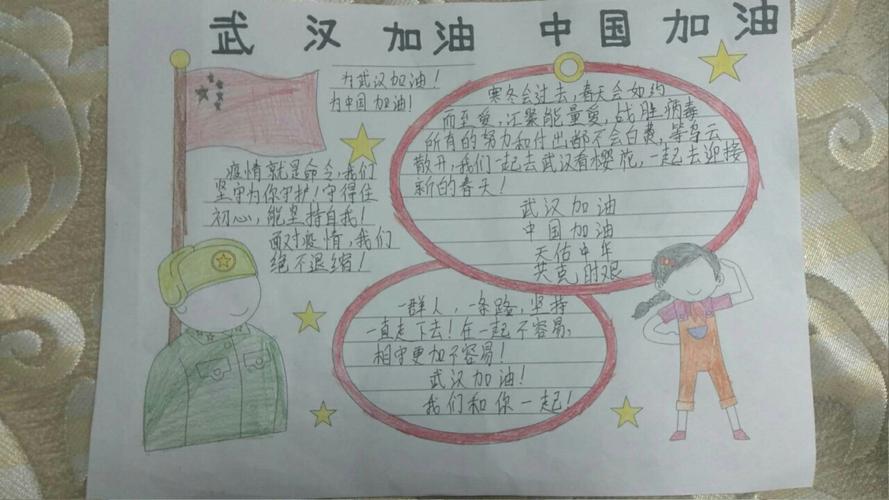 武汉加油 中国加油
为武汉加油!
为中国加油!
疫情就是命令,我们
坚守为你守护!守得住
初心,能坚持自我!
面对疫情,我们
绝不退缩!
寒冬会过去,春天会如约
而至爱,汇聚能量爱,战胜病毒
所有的努力和付出都不会白费,等乌云
散开,我们一起去武汉看樱花,一起去迎接
新的春天!
武汉加油
中国加油
天佑中年
共克时艰
一群人,一条路,坚持
一直走下去!在一起不容易,
相守更加不容易!
武汉加油!
我们和你一起!